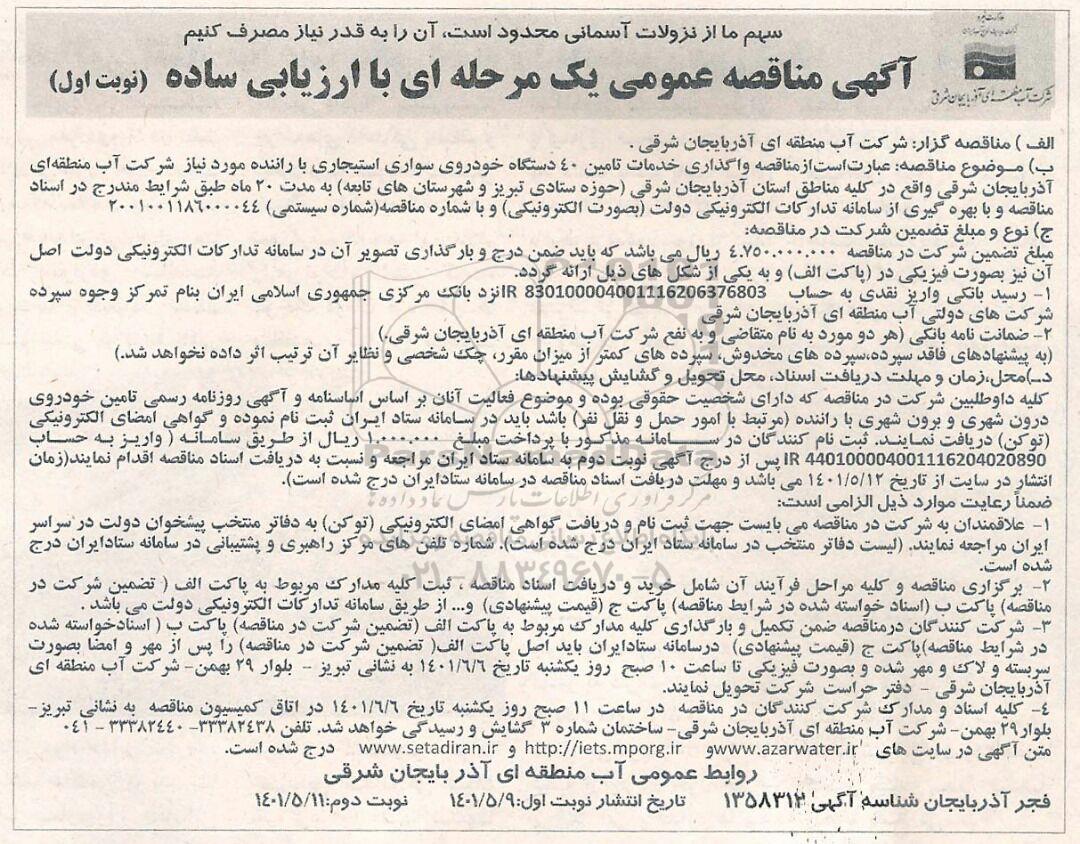 سهم ما از نزولات آسمانی محدود است، آن را به قدر نیاز مصرف کنیم
آگهی مناقصه عمومی یک مرحله ای با ارزیابی ساده (نوبت اول)
شرکت آب منطقه ای آذربایجان شرقی
الف ) مناقصه گزار: شرکت آب منطقه ای آذربایجان شرقی .
ب) موضوع مناقصه: عبارت است از مناقصه واگذاری خدمات تامین ۴۰ دستگاه خودروی سواری استیجاری با راننده مورد نیاز شرکت آب منطقه‌ای
آذربایجان شرقی واقع در کلیه مناطق استان آذربایجان شرقی (حوزه ستادی تبریز و شهرستان های تابعه) به مدت ۲۰ ماه طبق شرایط مندرج در اسناد
مناقصه و با بهره گیری از سامانه تدارکات الکترونیکی دولت (بصورت الکترونیکی) و با شماره مناقصه(شماره سیستمی) ۲۰۰۱۰۰۱۱۸۶۰۰۰۰۴۴
ج) نوع و مبلغ تضمین شرکت در مناقصه:
مبلغ تضمین شرکت در مناقصه ۴.۷۵۰.۰۰۰.۰۰۰ ریال می باشد که باید ضمن درج و بارگذاری تصویر آن در سامانه تدارکات الکترونیکی دولت اصل
آن نیز بصورت فیزیکی در (پاکت الف) و به یکی از شکل های ذیل ارائه گردد.
۱- رسید بانکی واریز نقدی به حساب IR 830100004001116206376803 نزد بانک مرکزی جمهوری اسلامی ایران بنام تمرکز وجوه سپرده
شرکت های دولتی آب منطقه ای آذربایجان شرقی
۲- ضمانت نامه بانکی (هر دو مورد به نام متقاضی و به نفع شرکت آب منطقه ای آذربایجان شرقی.)
(به پیشنهادهای فاقد سپرده،سپرده های مخدوش، سپرده های کمتر از میزان مقرر، چک شخصی و نظایر آن ترتیب اثر داده نخواهد شد.)
د-)محل،زمان و مهلت دریافت اسناد، محل تحویل و گشایش پیشنهادها:
کلیه داوطلبین شرکت در مناقصه که دارای شخصیت حقوقی بوده و موضوع فعالیت آنان بر اساس اساسنامه و آگهی روزنامه رسمی تامین خودروی
درون شهری و برون شهری با راننده (مرتبط با امور حمل و نقل نفر) باشد باید در سامانه ستاد ایران ثبت نام نموده و گواهی امضای الکترونیکی
(توکن) دریافت نمایند. ثبت نام کنندگان در سامانه مذکور با پرداخت مبلغ ۱.۰۰۰.۰۰۰ ریال از طریق سامانه ( واریز به حساب
IR 440100004001116204020890 پس از درج آگهی نوبت دوم به سامانه ستاد ایران مراجعه و نسبت به دریافت اسناد مناقصه اقدام نمایند(زمان
انتشار در سایت از تاریخ ۱۴۰۱/۵/۱۲ می باشد و مهلت دریافت اسناد مناقصه در سامانه ستادایران درج شده است).
ضمناً رعایت موارد ذیل الزامی است:
۱- علاقمندان به شرکت در مناقصه می بایست جهت ثبت نام و دریافت گواهی امضای الکترونیکی (توکن) به دفاتر منتخب پیشخوان دولت در سراسر
ایران مراجعه نمایند. (لیست دفاتر منتخب در سامانه ستاد ایران درج شده است). شماره تلفن های مرکز راهبری و پشتیبانی در سامانه ستادایران درج
شده است.
۲- برگزاری مناقصه و کلیه مراحل فرآیند آن شامل خرید و دریافت اسناد مناقصه ، ثبت کلیه مدارک مربوط به پاکت الف ( تضمین شرکت در
مناقصه) پاکت ب (اسناد خواسته شده در شرایط مناقصه) پاکت ج (قیمت پیشنهادی) و... از طریق سامانه تدارکات الکترونیکی دولت می باشد .
۳- شرکت کنندگان درمناقصه ضمن تکمیل و بارگذاری کلیه مدارک مربوط به پاکت الف (تضمین شرکت در مناقصه) پاکت ب ( اسنادخواسته شده
در شرایط مناقصه)پاکت ج (قیمت پیشنهادی) درسامانه ستادایران باید اصل پاکت الف( تضمین شرکت در مناقصه) را پس از مهر و امضا بصورت
سربسته و لاک و مهر شده و بصورت فیزیکی تا ساعت ۱۰ صبح روز یکشنبه تاریخ ۱۴۰۱/۶/۶ به نشانی تبریز - بلوار ۲۹ بهمن- شرکت آب منطقه ای
آذربایجان شرقی - دفتر حراست شرکت تحویل نمایند.
۴- کلیه اسناد و مدارک شرکت کنندگان در مناقصه در ساعت ۱۱ صبح روز یکشنبه تاریخ ۱۴۰۱/۶/۶ در اتاق کمیسیون مناقصه به نشانی تبریز-
بلوار۲۹ بهمن- شرکت آب منطقه ای آذربایجان شرقی- ساختمان شماره ۳ گشایش و رسیدگی خواهد شد. تلفن ۳۳۳۸۲۴۳۸- ۳۳۳۸۲۴۴۰ - ۰۴۱
متن آگهی در سایت های www.azarwater.ir و http://iets.mporg.ir و www.setadiran.ir درج شده است.
روابط عمومی آب منطقه ای آذربایجان شرقی
فجر آذربایجان شناسه آگهی ۱۳۵۸۳۱۲ تاریخ انتشار نوبت اول:۱۴۰۱/۵/۹ نوبت دوم:۱۴۰۱/۵/۱۱
ParsNamadData
مرکز فرآوری اطلاعات پارس نماد داده ها
۰۲۱-۸۸۳۴۹۶۷۰-۵